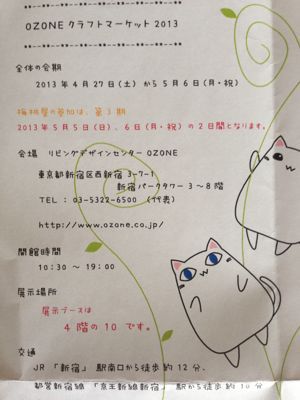 OZONE クラフトマーケット 2013
全体の会期
2013年4月27日(土)から5月6日(月・祝)
梅桃屋の参加は、第3期
2013年5月5日(日)、6日(月・祝)の2日間となります。
会場 リビングデザインセンター OZONE
東京都新宿区西新宿3-7-1
新宿パークタワー3~8階
TEL : 03-5322-6500 (代表)
http://www.ozone.co.jp/
開館時間
10:30 ~ 19:00
展示場所
展示ブースは
4階の10です。
交通
JR 「新宿」 駅南口から徒歩約12分、
都営新宿線 「京王新線新宿」 駅から徒歩約10分